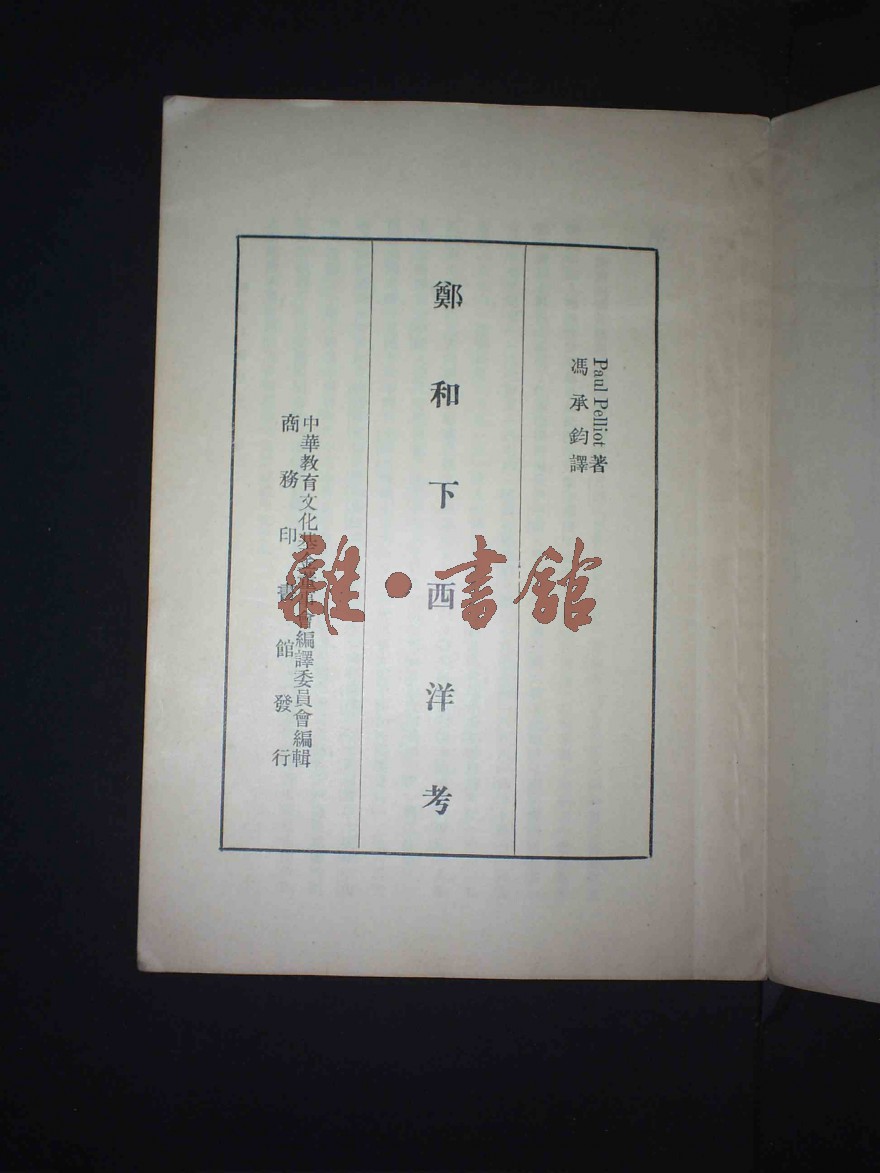 Paul Pelliot 著
馮承鈞譯
鄭和下西洋考
中華教育文化基金董事會編譯委員會編輯
商務印書館發行
雜·書館